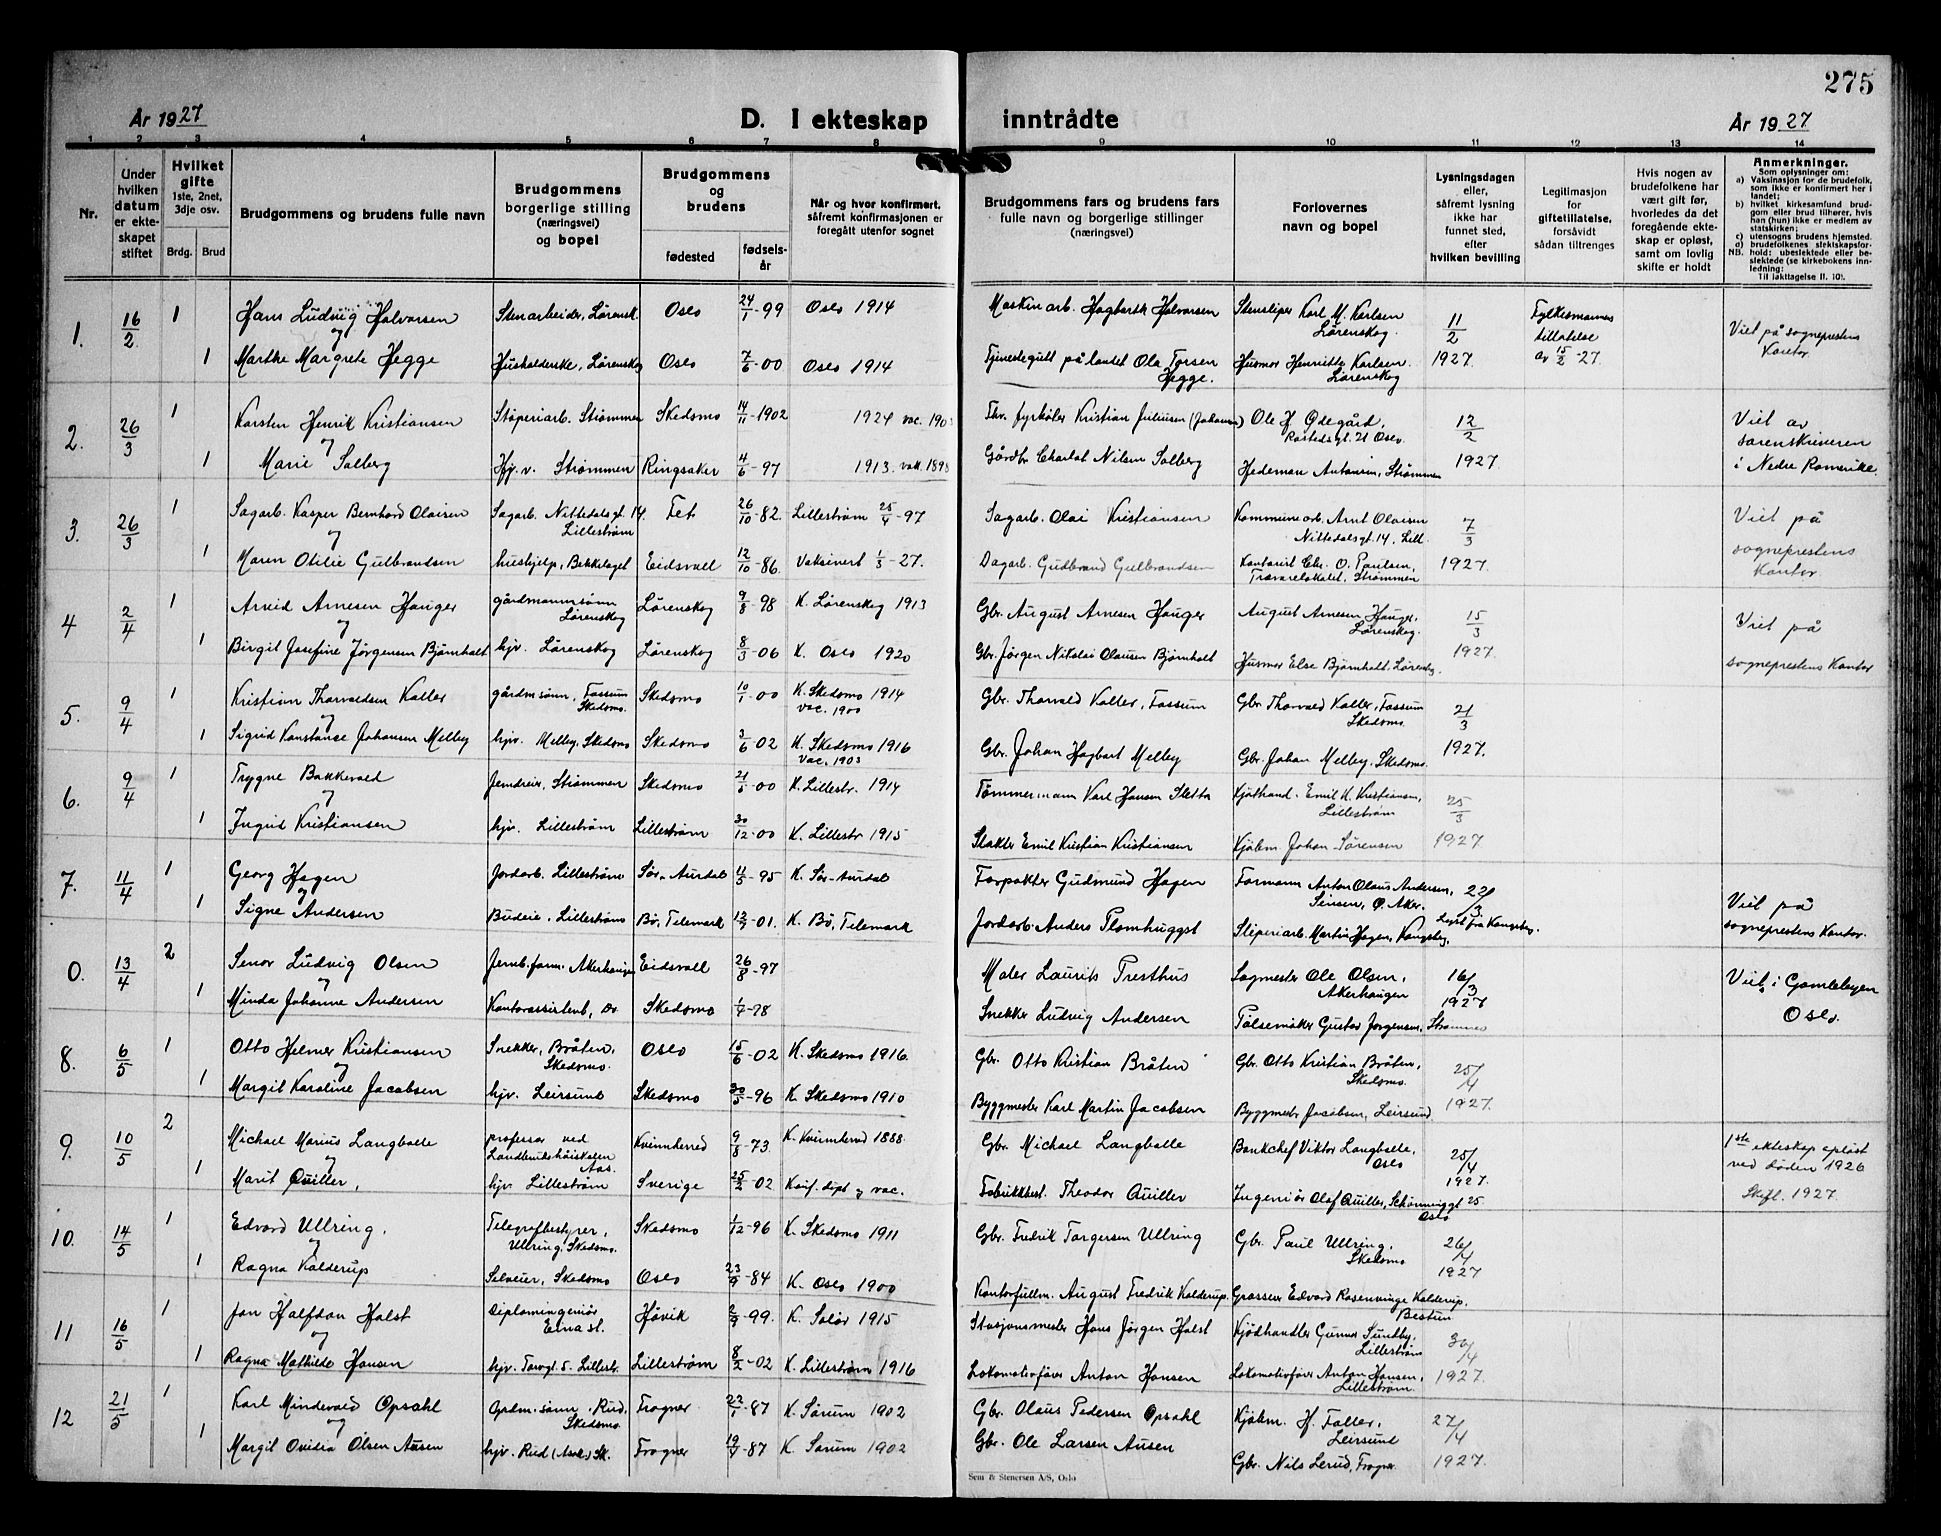 275
År 1927 D. I ekteskap inntrådte År 1927
1 2 3 4 5 6 7 8 9 10 11 12 13 14
Nr.
Under hvilken datum er ekteskapet stiftet
Hvilket gifte 1ste, 2net, 3dje osv.
Brdg. Brud
Brudgommens og brudens fulle navn
Brudgommens borgerlige stilling (næringsvei) og bopel
Brudgommens og brudens
fødested fødselsår
Når og hvor konfirmert, såfremt konfirmasjonen er foregått utenfor sognet
Brudgommens fars og brudens fars fulle navn og borgerlige stillinger (næringsvei)
Forlovernes navn og bopel
Lysningsdagen eller, såfremt lysning ikke har funnet sted, efter hvilken bevilling
Legitimasjon for giftetillatelse, forsåvidt sådan tiltrenges
Hvis nogen av brudefolkene har vært gift før, hvorledes da det foregående ekteskap er opløst, samt om lovlig skifte er holdt
Anmerkninger.
Som oplysninger om:
a) Vaksinasjon for de brudefolk, som ikke er konfirmert her i landet;
b) hvilket kirkesamfund brudgom eller brud tilhører, hvis han (hun) ikke er medlem av statskirken;
c) utensogns brudens hjemsted.
d) brudefolkenes slektskapsforhold: ubeslektede eller beslektede (se kirkebokens innledning:
NB. Til iakttagelse II. 10).
1. 16/2 1 Hans Ludvig Halvorsen Stenarbeider, Lørensk. Oslo 24/1-99 Oslo 1914 Maskinarb. Hagbarth Halvorsen Stensliper Karl M. Karlsen Lørenskog 11/2 Fylkesmannens tillatelse Viet på sogneprestens Kontor
og
1 Marthe Margrete Hegge Husholderske, Lørenskog Oslo 7/6-00 Oslo 1914 Tjenestegutt på landet Ola Torsen Hegge. Husmor Henriette Karlsen Lørenskog 1927 av 15/2-27.
2. 26/3 1 Karsten Henrik Kristiansen Støperiarb. Strømmen Skedsmo 14/11-1902 1924 vac. 1903 Fhv. fyrbøter Kristian Juliusen (Johansen) Ole H Ødegård, Oslo. 12/2 Viet av sorenskriveren
og
1 Marie Solberg Hj. v. Strømmen Ringsaker 4/6-97 1913. vak. 1898 Gårdbr Charlot Nilsen Solberg Hedeman Antonsen, Strømmen 1927. i Nedre Romerike.
3. 26/3 1 Sagarb. Kasper Bernhard Olaisen Sagarb. Nittedalsgt. 14. Lillestrøm Fet 26/10-82. Lillestrøm 25/4-97 Sagarb. Olai Kristiansen Kommunearb. Arnt Olaisen Nittedalsgt. 14. Lill. 7/3 Viet på
og
1 Maren Otilie Gulbrandsen hushjelp, Bekkelaget Eidsvoll 12/10-86. Vaksinert 1/3-27. Dagarb. Gudbrand Gulbrandsen Kontorist Chr. O. Paulsen, Trævarelokalet, Strømmen 1927. sogneprestens Kontor
4 2/4 1 Arvid Arnesen Hauger gårdmannssønn Lørenskog Lørenskog 9/8-98 K. Lørenskog 1913 Gbr. August Arnesen Hauger August Arnesen Hauger, Lørenskog. 15/3 Viet på
og
1 Birgit Josefine Jørgensen Bjørnholt hjv. Lørenskog Lørenskog 8/3-06 K. Oslo 1920 Gbr. Jørgen Nikolai Olausen Bjørnholt Husmor Else Bjørnholt, Lørensk. 1927. sogneprestens Kontor
5. 9/4 1 Kristian Thorvaldsen Valler gårdmsønn, Fossum Skedsmo. Skedsmo 10/1-00 K. Skedsmo 1914 Vac. 1900 Gbr. Thorvald Valler, Fossum Gbr. Thorvald Valler, Fossum Skedsmo 21/3
og
1 Sigrid Konstanse Johansen Melby hjv. Melby, Skedsmo Skedsmo 3/6-02 K. Skedsmo 1916 Vac. 1903 Gbr. Johan Hagbart Melby Gbr. Johan Melby. Skedsmo. 1927.
6. 9/4 1 Trygve Bakkevold Jerndreier, Strømmen Skedsmo 21/1-00 K. Lillestr. 1914 Tømmermann Karl Hansen Sletta Kjøthand. Emil K. Kristiansen, Lillestrøm 25/3
og
1 Ingrid Kristiansen hjv. Lillestrøm Lillestrøm 30/12-00 K. Lillestr 1915 Slakter Emil Kristian Kristiansen Kjøbm Johan Sørensen 1927
7. 11/4 1 Georg Hagen Jordarb. Lillestrøm Sør-Aurdal 4/5-95 K. Sør-Aurdal Forpakter Gudmund Hagen Formann Anton Olaus Andersen, Sinsen, Ø. Aker. 22/3 Viet på
og
1 Signe Andersen Budeie, Lillestrøm Bø, Telemark -01. K. Bø, Telemark Jordarb. Anders Plomhuggst Støperiarb. Martin Hagen, Kongsbg. Lyst fra Kongsberg. sogneprestens Kontor.
0. 13/4 2 Senor Ludvig Olsen Jernb.form. Akerhaugen Eidsvoll 26/8-97 Maler Laurits Presthus Sagmester Ole Olsen, Akerhaugen 16/3 Viet i Gamlebyen
og
1 Minda Johanne Andersen Kontorassistent, Do Skedsmo 1/4-98 Snekker Ludvig Andersen Pølsemaker Gustav Jørgensen, Strømmen 1927 Oslo.
8. 6/5 1 Otto Helmer Kristiansen Snekker, Bråten, Skedsmo. Oslo 15/6-02 K. Skedsmo 1916. Gbr. Otto Kristian Bråten Gbr. Otto Kristian Bråten, Skedsmo. 25/4
og
1 Margit Karoline Jacobsen hjv. Leirsund Skedsmo 30/5-96 K. Skedsmo 1910 Byggmester Karl Martin Jacobsen Byggmestr Jacobsen, Leirsund 1927.
9. 10/5 2 Michael Marius Langballe professor ved Landbrukshøiskolen Aas. Kvinnherred 9/8-73. K. Kvinnherred 1888. Gbr. Michael Langballe Bankchef Viktor Langballe, Oslo 25/4 1ste ekteskap opløst ved døden 1926
og
1 Marit Quiller, hjv Lillestrøm Sverige 25/2-02 Konf. døpt og vac. Fabrikkbest. Theodor Quiller Ingeniør Olaf Quiller, Schønninggt 25. Oslo 1927. Skift. 1927.
10. 14/5 1 Edvard Ullring, Telegrafbestyrer, Ullring, Skedsmo. Skedsmo 1/12-96 K. Skedsmo 1911 Gbr. Fredrik Torgersen Ullring Gbr. Paul Ullring, Skedsmo 26/4
og
1 Ragna Kalderup Skedsmo Oslo 23/9-84 K. Oslo 1900 Kontorfullm. August Fredrik Kalderup. Grosserer Edvard Rosenvinge Kalderup, Bestun 1927
11 16/5 1 Jan Halfdan Holst Diplomingeniør Eina st. Høvik 2/9-99. K. Solør 1915 Stasjonsmester Hans Jørgen Holst Kjødhandler Gunnar Sundby, Lillestrøm 30/4
og
1 Ragna Mathilde Hansen hjv. Torvgt. 5. Lillestr. Lillestrøm 8/2-02 K. Lillestrøm 1916 Lokomotivfører Anton Hansen Lokomotivfører Anton Hansen, Lillestrøm. 1927.
12 21/5 1 Karl Mindevald Opsahl Gårdm.sønn. Rud, Skedsmo. Frogner 22/1-87 K. Sørum 1902 Gbr. Olaus Pedersen Opsahl Kjøbm. H. Faller, Leirsund 27/4
og
1 Margit Ovidia Olsen Ausen hjv. Rud (Asak) Sk. Frogner 19/9-87 K. Sørum 1902 Gbr. Ole Larsen Ausen Gbr. Nils Lerud, Frogner 1927.
Sem & Stenersen A/S, Oslo